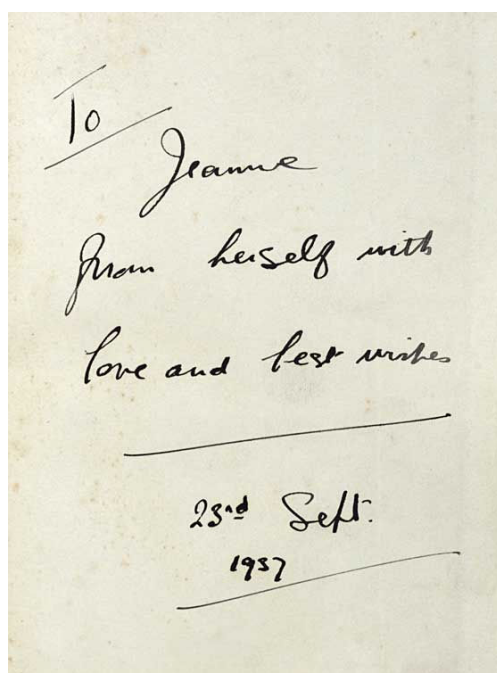 To
Jeanne
from herself with
love and best wishes
23rd Sept.
1937